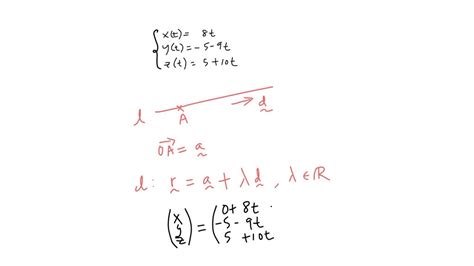 x(t) = 8t
y(t) = -5-9t
z(t) = 5+10t
l A → d
OA = a
l: r = a + λd, λ∈ℝ
(x y z) = (0+8t -5-9t 5+10t)